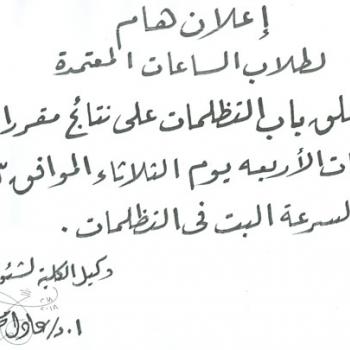 إعلان هام
لطلاب الساعات المعتمدة
باب التظلمات على نتائج
الأربعه يوم الثلاثاء الموافق
لسرعة البت فى التظلمات .
وكيل الكلية
ا.د/عادل